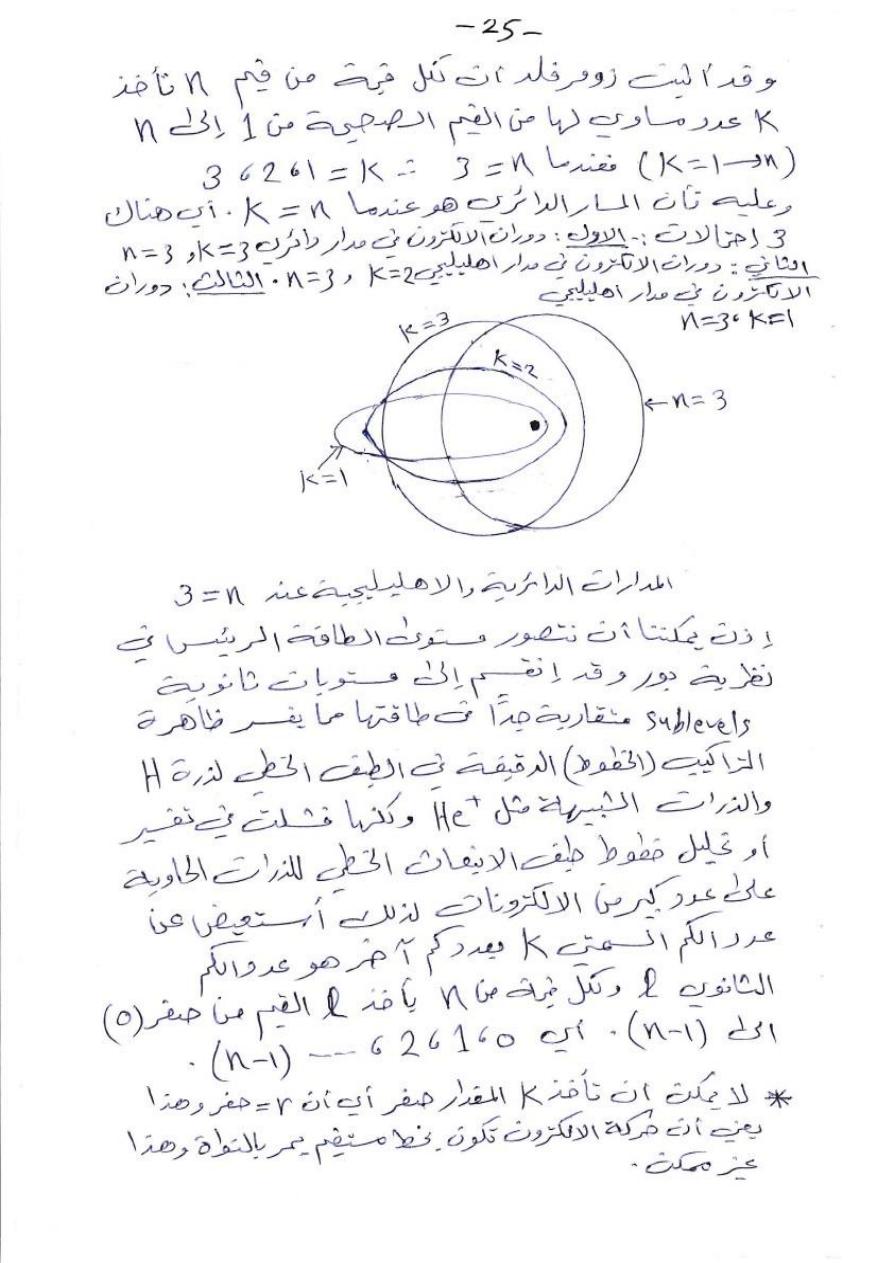 -25-
وقد أثبت زومرفلد أن لكل قيمة من قيم n تأخذ
k عدد مساوي لها من القيم الصحيحة من 1 إلى n
(k=1→n) فعندما n=3 ∴ k=1،2،3
وعليه فأن المسار الدائري هو عندما k=n. أي هناك
3 إحتمالات :- الاول: دوران الالكترون في مدار دائري k=3 و n=3
الثاني: دوران الالكترون في مدار اهليليجي k=2 و n=3. الثالث: دوران
الالكترون في مدار اهليليجي
n=3، k=1
k=3
k=2
←n=3
k=1
المدارات الدائرية والاهليليجية عند n=3
إذن يمكننا أن نتصور مستوى الطاقة الرئيس في
نظرية بور وقد إنقسم إلى مستويات ثانوية
sublevels متقاربة جداً في طاقتها مما يفسر ظاهرة
التراكيب (الخطوط) الدقيقة في الطيف الخطي لذرة H
والذرات الشبيهة مثل He+ ولكنها فشلت في تفسير
أو تحليل خطوط طيف الانبعاث الخطي للذرات الحاوية
على عدد كبير من الالكترونات لذلك أستعيض عن
عدد الكم السمتي k بعدد كم آخر هو عدد الكم
الثانوي l ولكل قيمة من n يأخذ l القيم من صفر (0)
الى (n-1). أي 0،1،2، --- (n-1).
* لا يمكن ان تأخذ k المقدار صفر أي أن r= صفر وهذا
يعني أن حركة الالكترون تكون بخط مستقيم يمر بالنواة وهذا
غير ممكن.